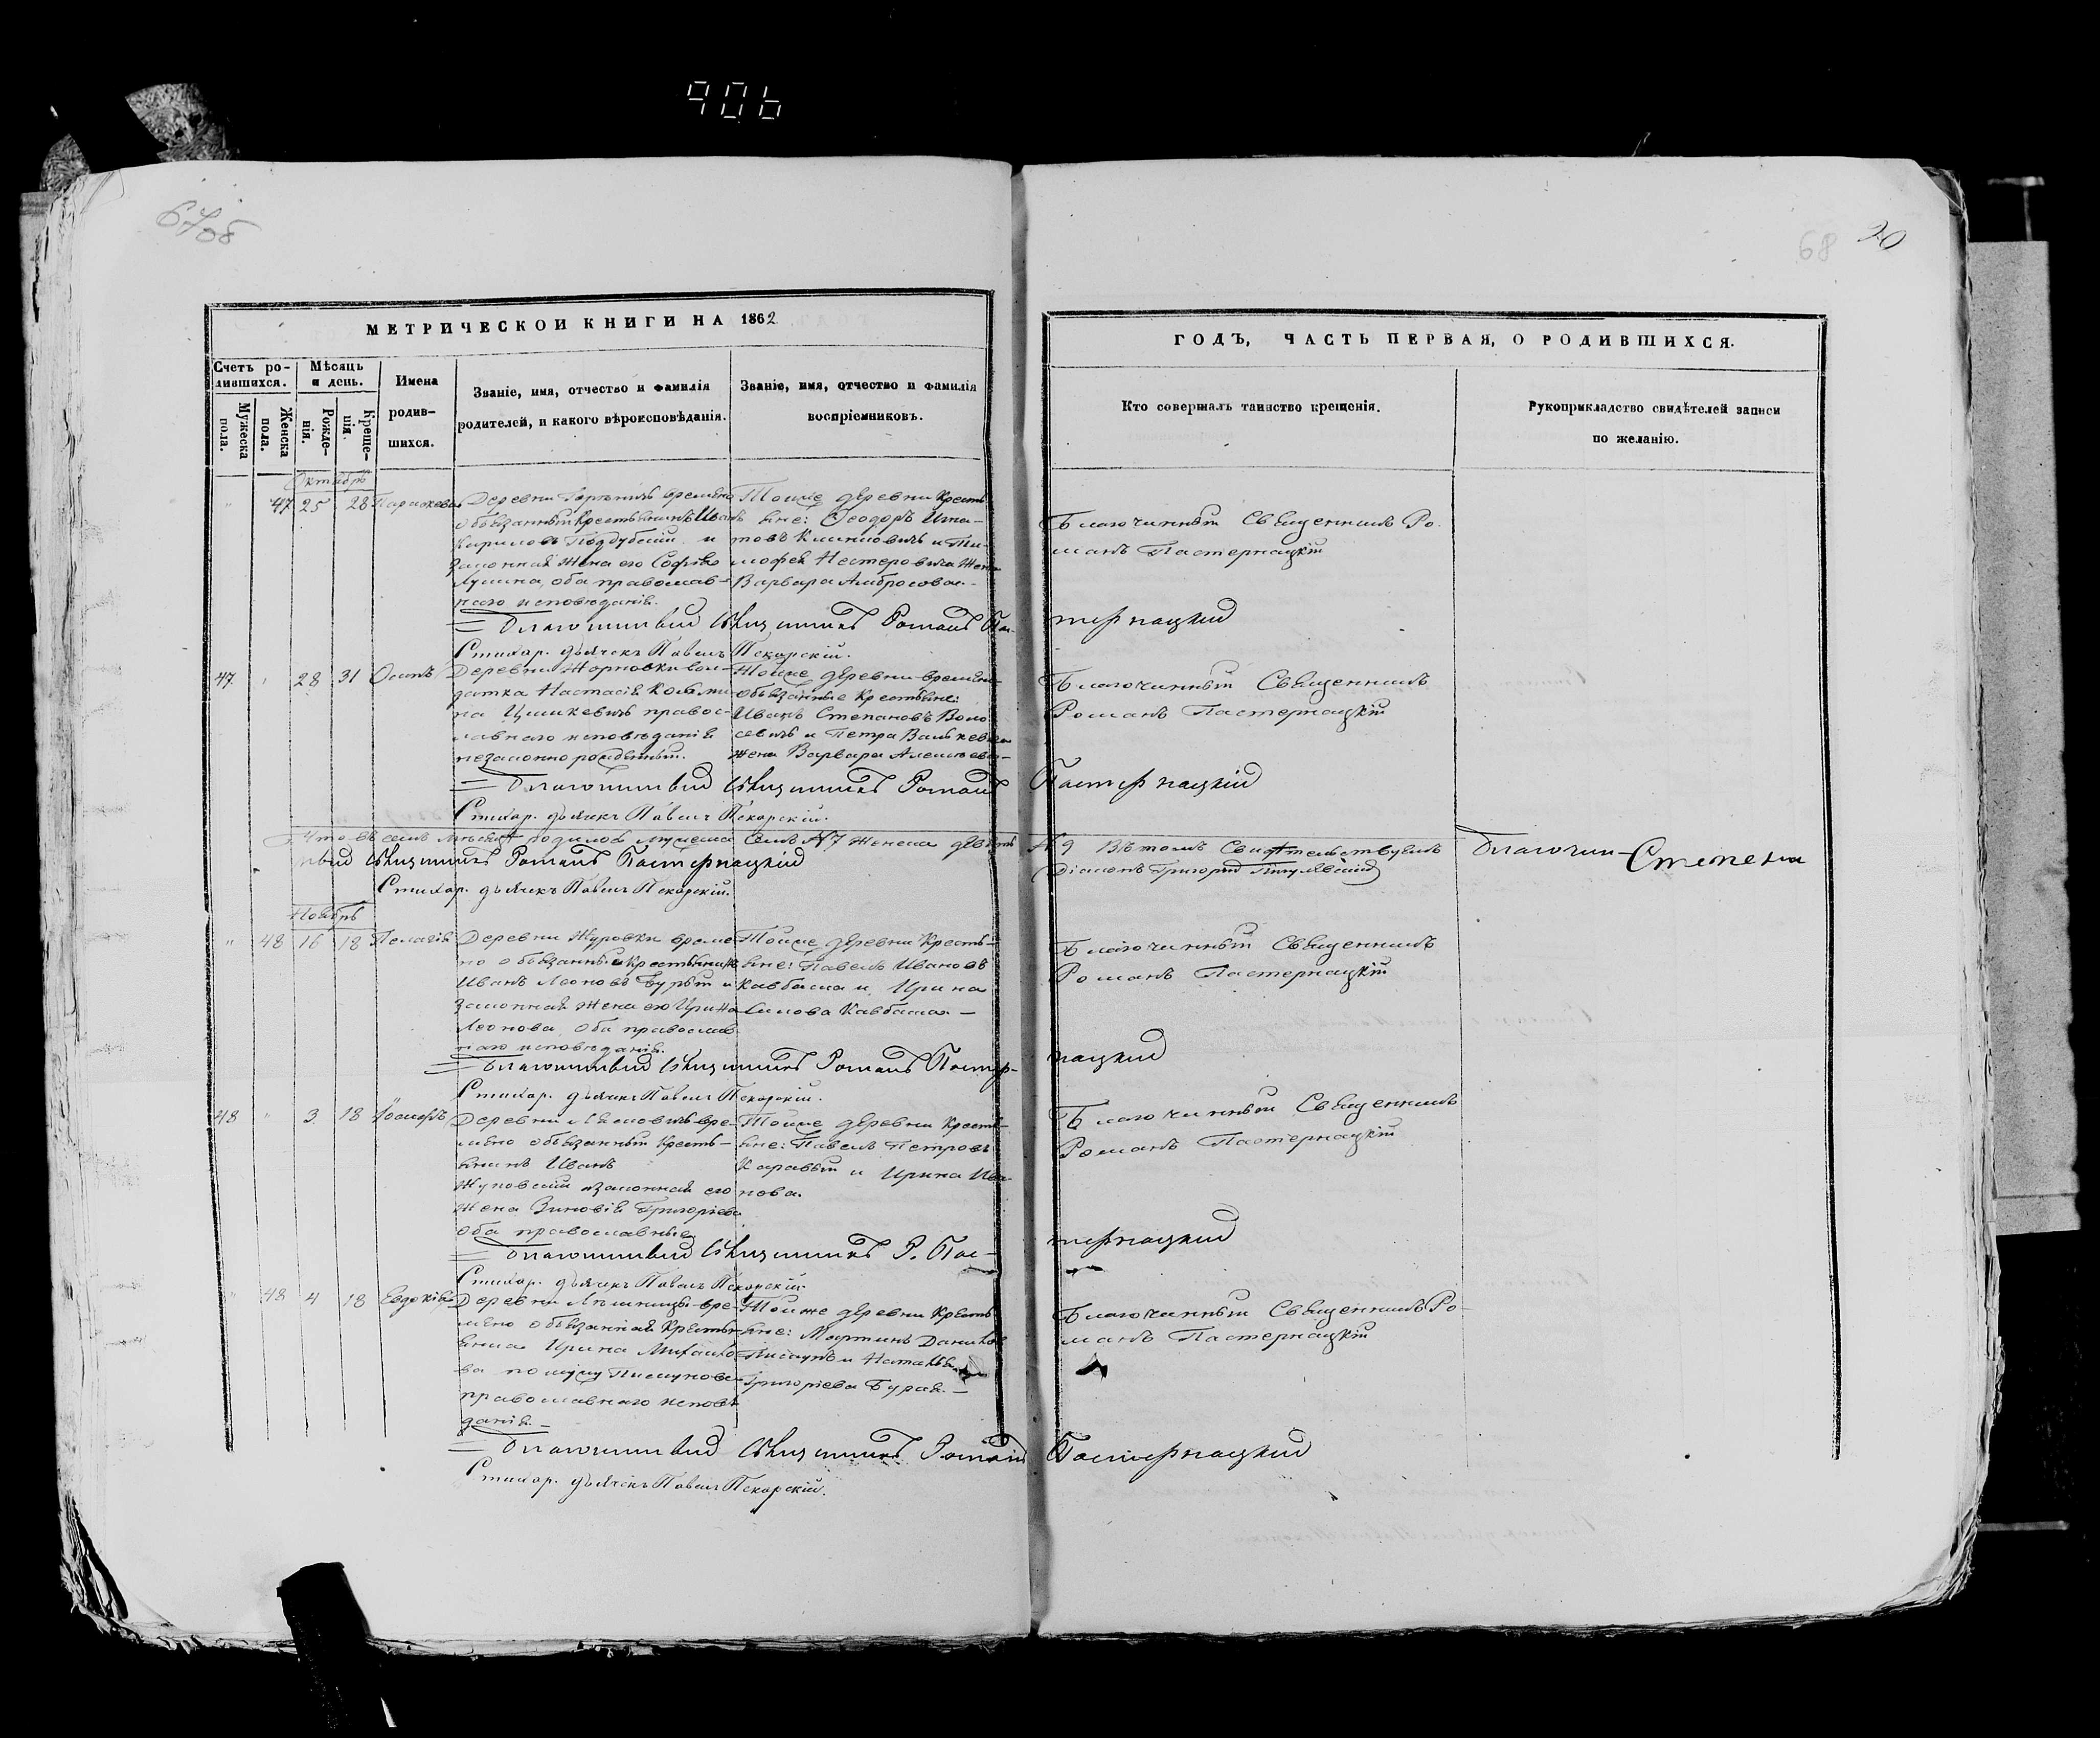 906
67об
68 20
МЕТРИЧЕСКОЙ КНИГИ НА 1862
ГОДЪ, ЧАСТЬ ПЕРВАЯ, О РОДИВШИХСЯ.
Счетъ ро-
дившихся.
Мужеска
пола.
Женска
пола.
Мѣсяцъ
и день.
Рожде-
нія.
Креще-
нія.
Имена
родив-
шихся.
Званіе, имя, отчество и фамилія
родителей, и какого вѣроисповѣданія.
Званіе, имя, отчество и фамилія
воспріемниковъ.
Кто совершалъ таинство крещенія.
Рукоприкладство свидѣтелей записи
по желанію.
Октябрь
" 47 25 28 Параскева
Деревни времено
обязанный крестьянинъ Иванъ
Кириловъ Поддубскій и
законная жена его Софія
Лукина, оба православ-
наго исповѣданія.
Тойже деревни кресть-
яне: Ѳеодоръ Игна-
товъ Климовичъ и Ти-
мофея Нестеровича жена
Варвара Амбросова.-
Благочинный Священникъ Ро-
манъ Пастернацкій
Благочинный Священникъ Романъ Пас-
тернацкий
Стихар. дьячекъ Павелъ Пекарскій.
47 " 28 31 Осипъ
Деревни Жорновки сол-
датка Настасія Козьми-
на Цишкевичъ правос-
лавнаго исповѣданія
незаконно рожденный.
Тойже деревни времено-
обязанные крестьяне:
Иванъ Степановъ Воло
севичъ и Петра Валькевича
жена Варвара Алексѣева-
Благочинный Священникъ
Романъ Пастернацкій
Благочинный Священникъ Романъ Пастернацкій
Стихар. дьячекъ Павелъ Пекарскій.
Что въ семъ мѣсяцѣ родилось мужеска семь № 7 женска девять
№ 9 Въ томъ Свидѣтельствуемъ Благочин-
ный Священникъ Романъ Пастернацкій
Діаконъ Григорий
Степени
Стихар. дьячекъ Павелъ Пекарскій.
Ноябрь
" 48 16 18 Пелагія
Деревни Журовки време-
но обязанный крестьянинъ
Иванъ Леоновъ Бурый и
законная жена его Ирина
Леонова, оба православ-
наго исповѣданія.
Тойже деревни кресть-
яне: Павелъ Ивановъ
Кавбаса и Ирина
Силова Кавбаса.-
Благочинный Священникъ
Романъ Пастернацкій
Благочинный Священникъ Романъ Пастер-
нацкий
Стихар. дьячекъ Павелъ Пекарскій.
48 " 3 18 Іосифъ
Деревни вре-
мено обязанный кресть-
янинъ Иванъ
Жуковскій и законная его
жена Зиновія Григорьева
оба православные
Тойже деревни кресть-
яне: Павелъ Петровъ
Каравый и Ирина Ива-
нова.
Благочинный Священникъ
Романъ Пастернацкій
Благочинный Священникъ Р. Пас-
тернацкий
Стихар. дьячекъ Павелъ Пекарскій.
" 48 4 18 Евдокія
Деревни вре-
мено обязанная кресть-
янка Ирина Михайло-
ва по мужу Пискунова
православнаго исповѣ
данія.-
Тойже деревни кресть-
яне: Мартинъ Данилов
Пискунъ и Наталья
Григорьева Бурая.-
Благочинный Священникъ Ро-
манъ Пастернацкій
Благочинный Священникъ Романъ Пастернацкий
Стихар. дьячекъ Павелъ Пекарскій.